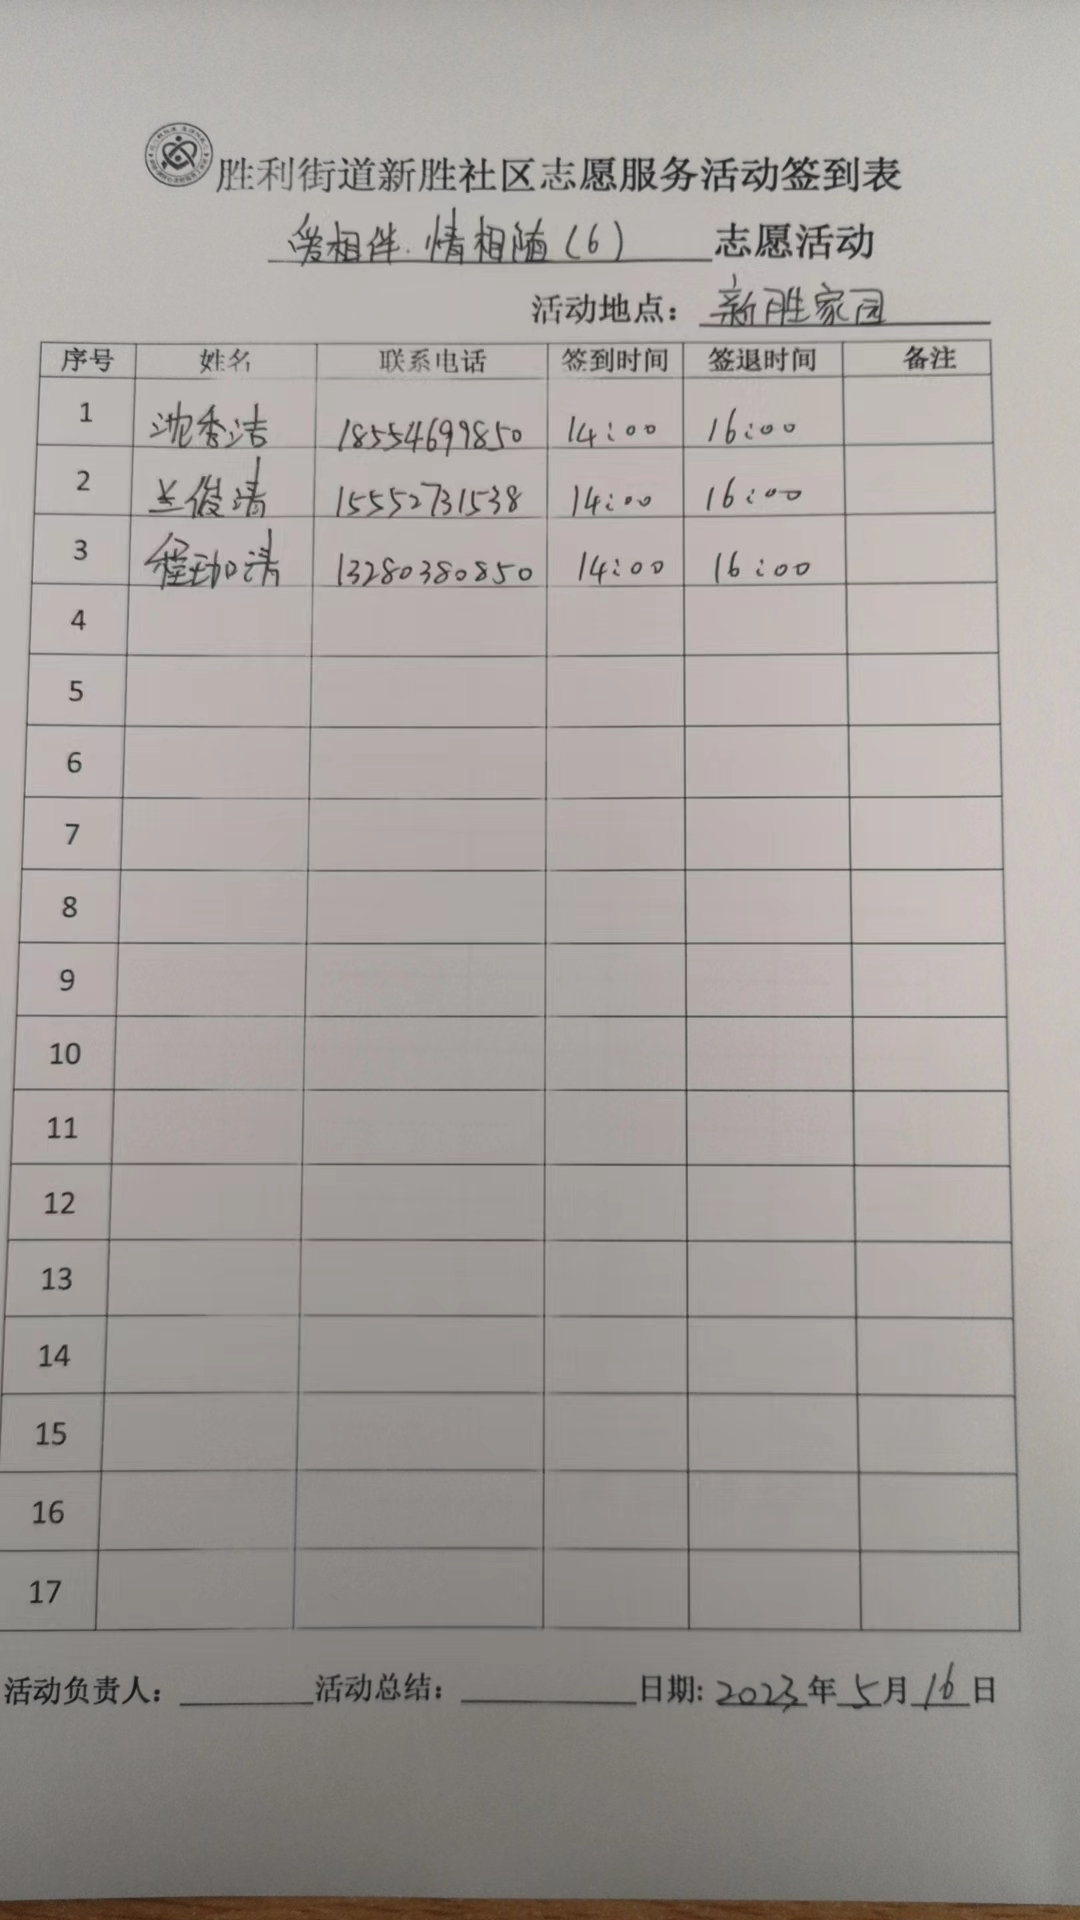 胜利街道新胜社区志愿服务活动签到表
爱相伴.情相随(6) 志愿活动
活动地点: 新胜家园
序号 姓名 联系电话 签到时间 签退时间 备注
1 沈秀洁 18554699850 14:00 16:00
2 兰俊清 15552731538 14:00 16:00
3 程 13280380850 14:00 16:00
4
5
6
7
8
9
10
11
12
13
14
15
16
17
活动负责人: 活动总结: 日期: 2023年5月16日